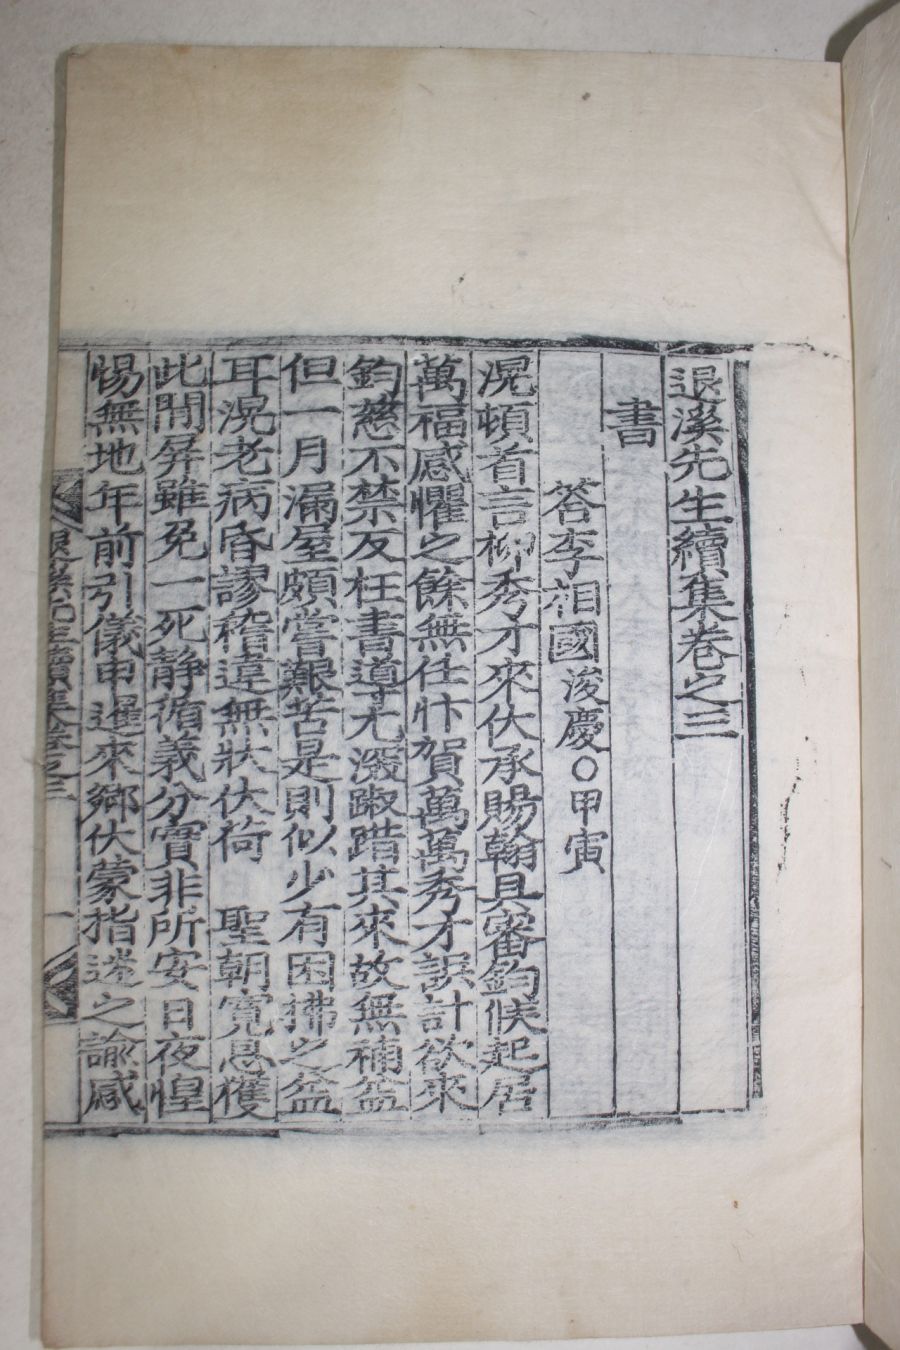 退溪先生續集卷之三
書
答李相國浚慶○甲寅
滉頓首言柳秀才來伏承賜翰具審鈞候起居
萬福感懼之餘無任忭賀萬萬秀才誤計欲來
鈞慈不禁反枉書導尤深踧踖其來故無補益
但一月漏屋頗嘗艱苦是則似少有困拂之益
耳滉老病昏謬稽違無狀伏荷　聖朝寬恩獲
此閒屛雖免一死靜循義分實非所安日夜惶
惕無地年前引儀申暹來鄉伏蒙指迷之諭感
退溪先生續集卷之三　一